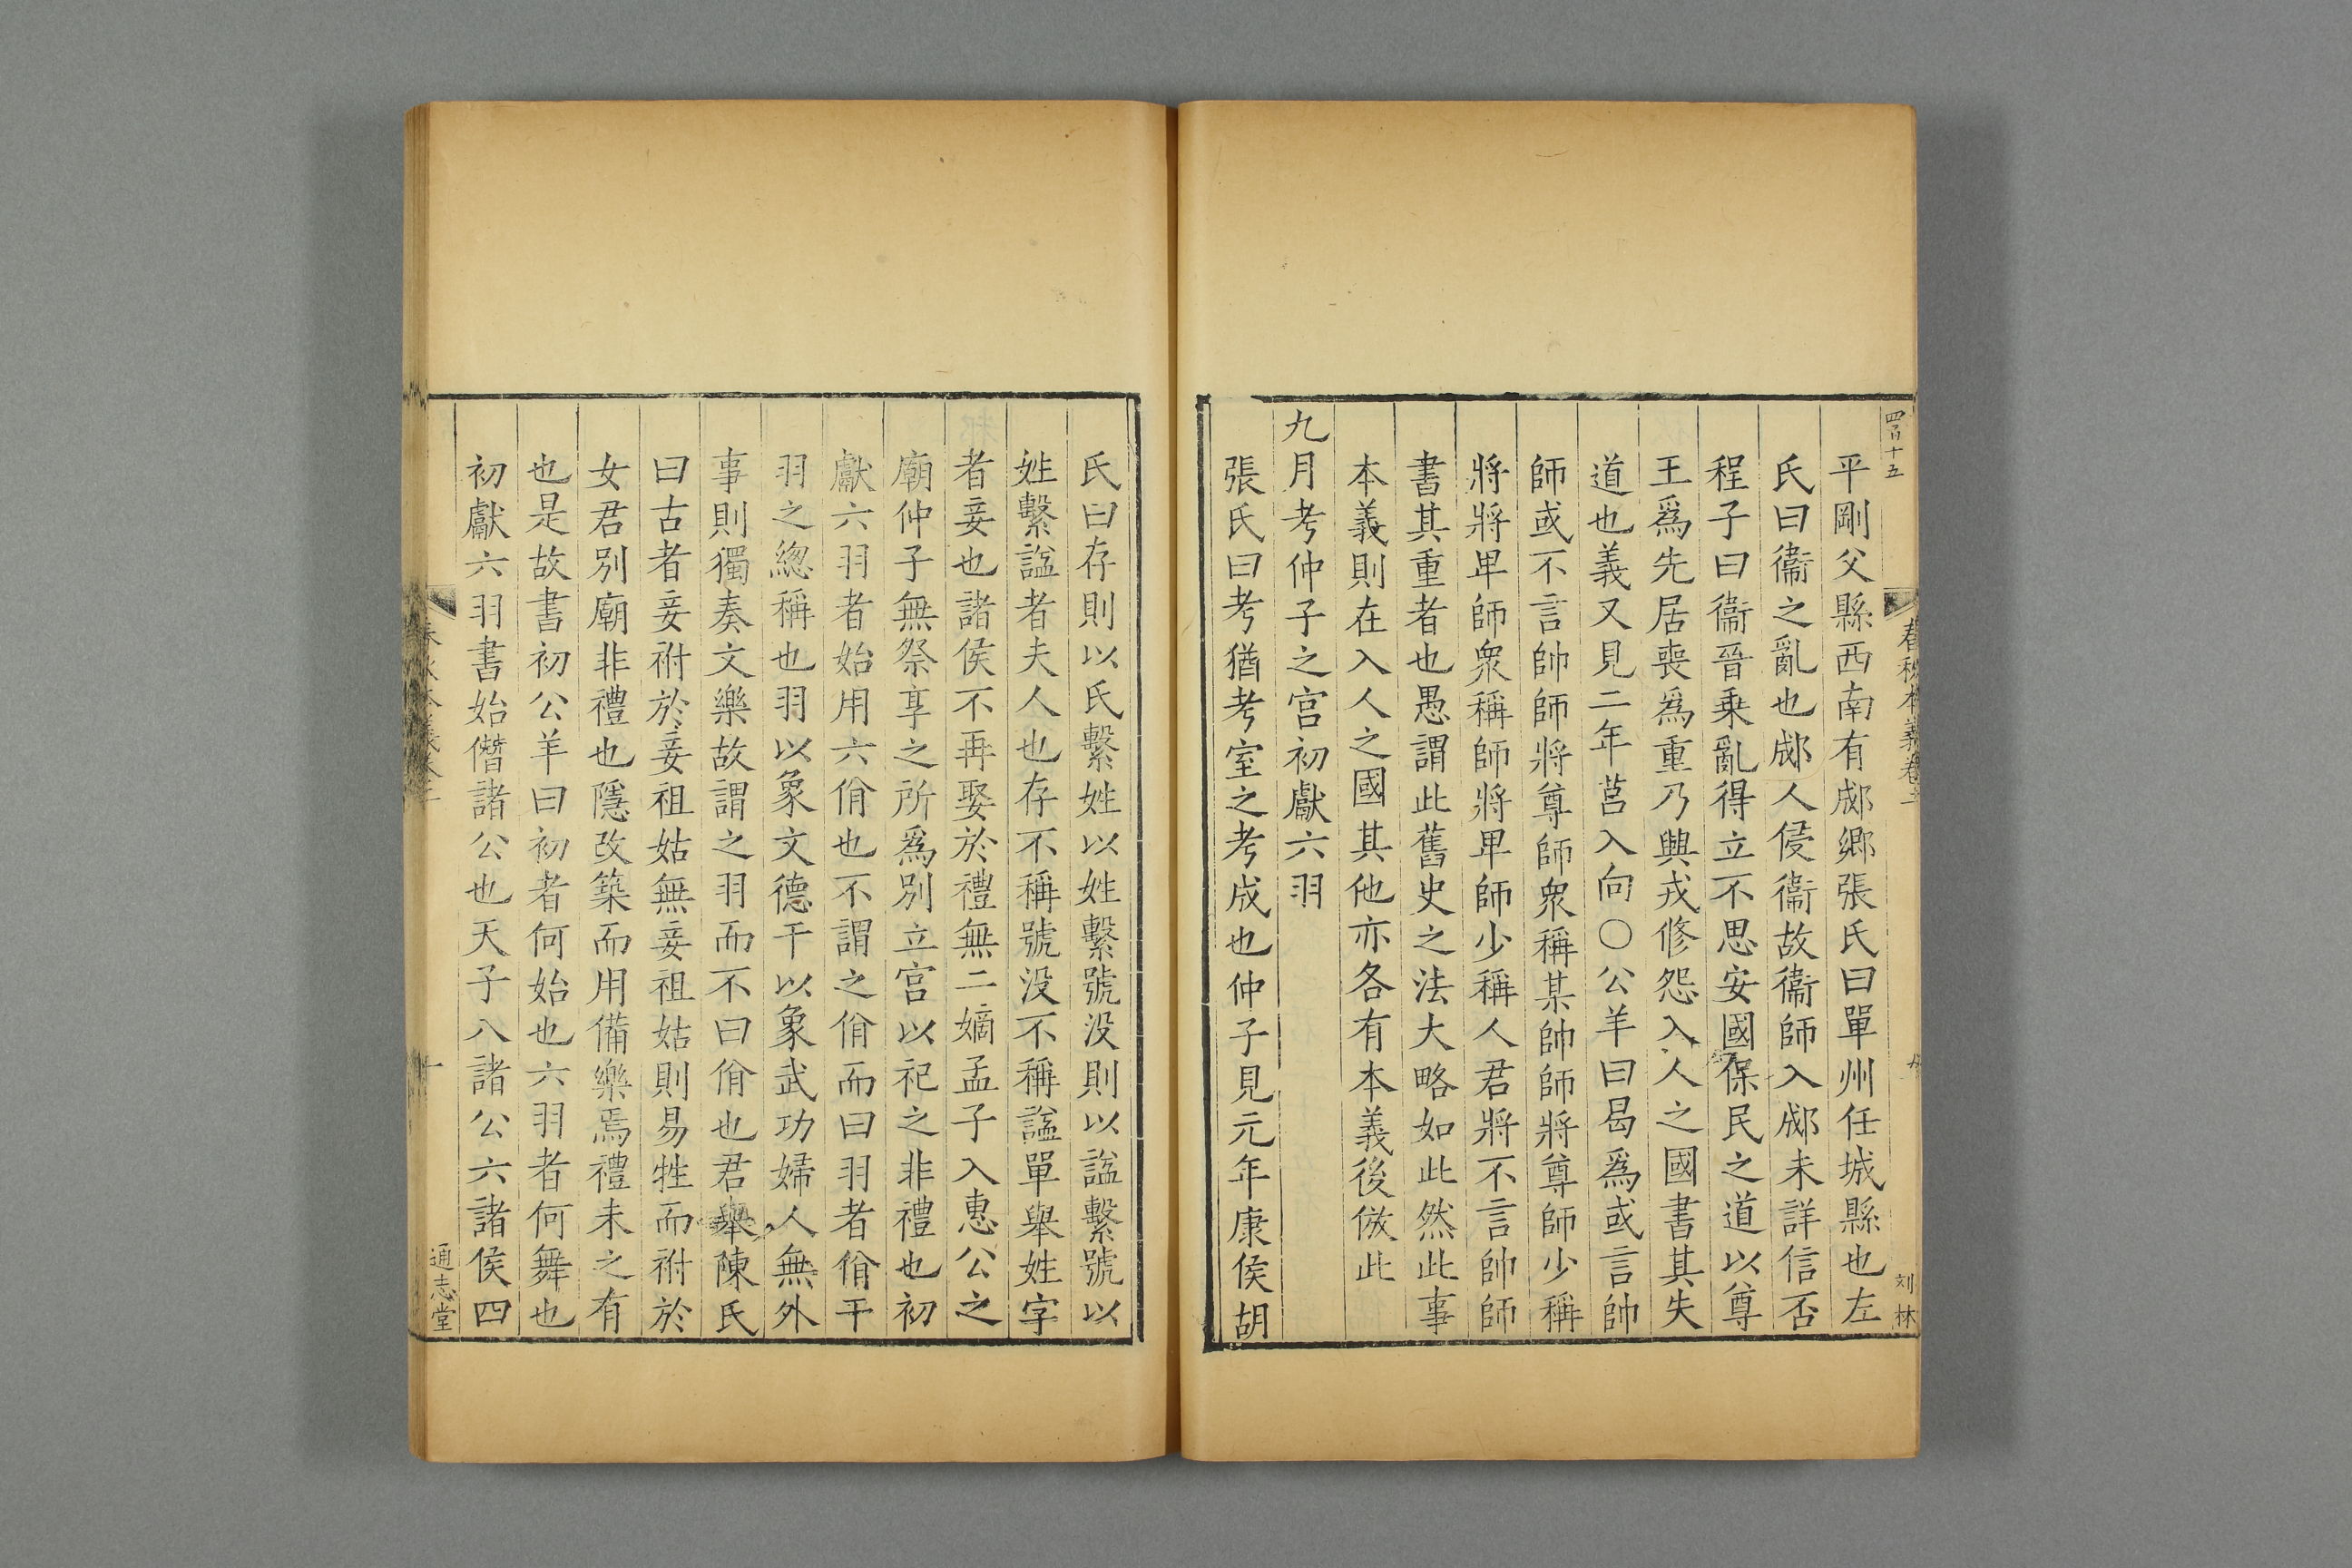 四百十五
春秋本義卷二
刘林
平剛父縣西南有郕鄉張氏曰單州任城縣也左
氏曰衞之亂也郕人侵衞故衞師入郕未詳信否
程子曰衞晉乗亂得立不思安國保民之道以尊
王爲先居喪爲重乃興戎修怨入人之國書其失
道也義又見二年莒入向○公羊曰曷爲或言帥
師或不言帥師將尊師衆稱某帥師將尊師少稱
將將卑師衆稱師將卑師少稱人君將不言帥師
書其重者也愚謂此舊史之法大略如此然此事
本義則在入人之國其他亦各有本義後倣此
九月考仲子之宫初獻六羽
張氏曰考猶考室之考成也仲子見元年康侯胡
氏曰存則以氏繫姓以姓繫號没則以諡繫號以
姓繫諡者夫人也存不稱號没不稱諡單舉姓字
者妾也諸侯不再娶於禮無二嫡孟子入惠公之
廟仲子無祭享之所爲別立宫以祀之非禮也初
獻六羽者始用六佾也不謂之佾而曰羽者佾干
羽之緫稱也羽以象文德干以象武功婦人無外
事則獨奏文樂故謂之羽而不曰佾也君舉陳氏
曰古者妾祔於妾祖姑無妾祖姑則易牲而祔於
女君別廟非禮也隱改築而用備樂焉禮未之有
也是故書初公羊曰初者何始也六羽者何舞也
初獻六羽書始僭諸公也天子八諸公六諸侯四
十
通志堂